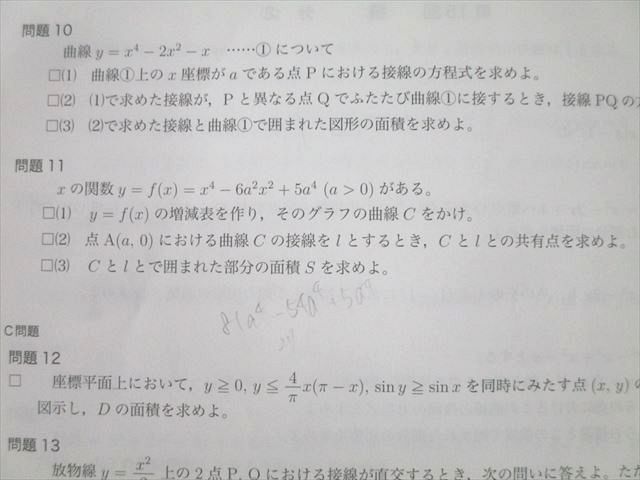 問題10
曲線 y = x⁴ − 2x² − x ……① について
□(1) 曲線①上の x 座標が a である点 P における接線の方程式を求めよ。
□(2) (1)で求めた接線が，P と異なる点 Q でふたたび曲線①に接するとき，接線 PQ の
□(3) (2)で求めた接線と曲線①で囲まれた図形の面積を求めよ。
問題11
x の関数 y = f(x) = x⁴ − 6a²x² + 5a⁴ (a > 0) がある。
□(1) y = f(x) の増減表を作り，そのグラフの曲線 C をかけ。
□(2) 点 A(a, 0) における曲線 C の接線を l とするとき，C と l との共有点を求めよ。
□(3) C と l とで囲まれた部分の面積 S を求めよ。
81a⁴ − 54a⁴ + 5a⁴
C問題
問題12
□ 座標平面上において，y ≧ 0, y ≦ 4/π x(π − x), sin y ≧ sin x を同時にみたす点 (x, y) の
図示し，D の面積を求めよ。
問題13
放物線 y = x²/2 上の 2 点 P, Q における接線が直交するとき，次の問いに答えよ。ただ